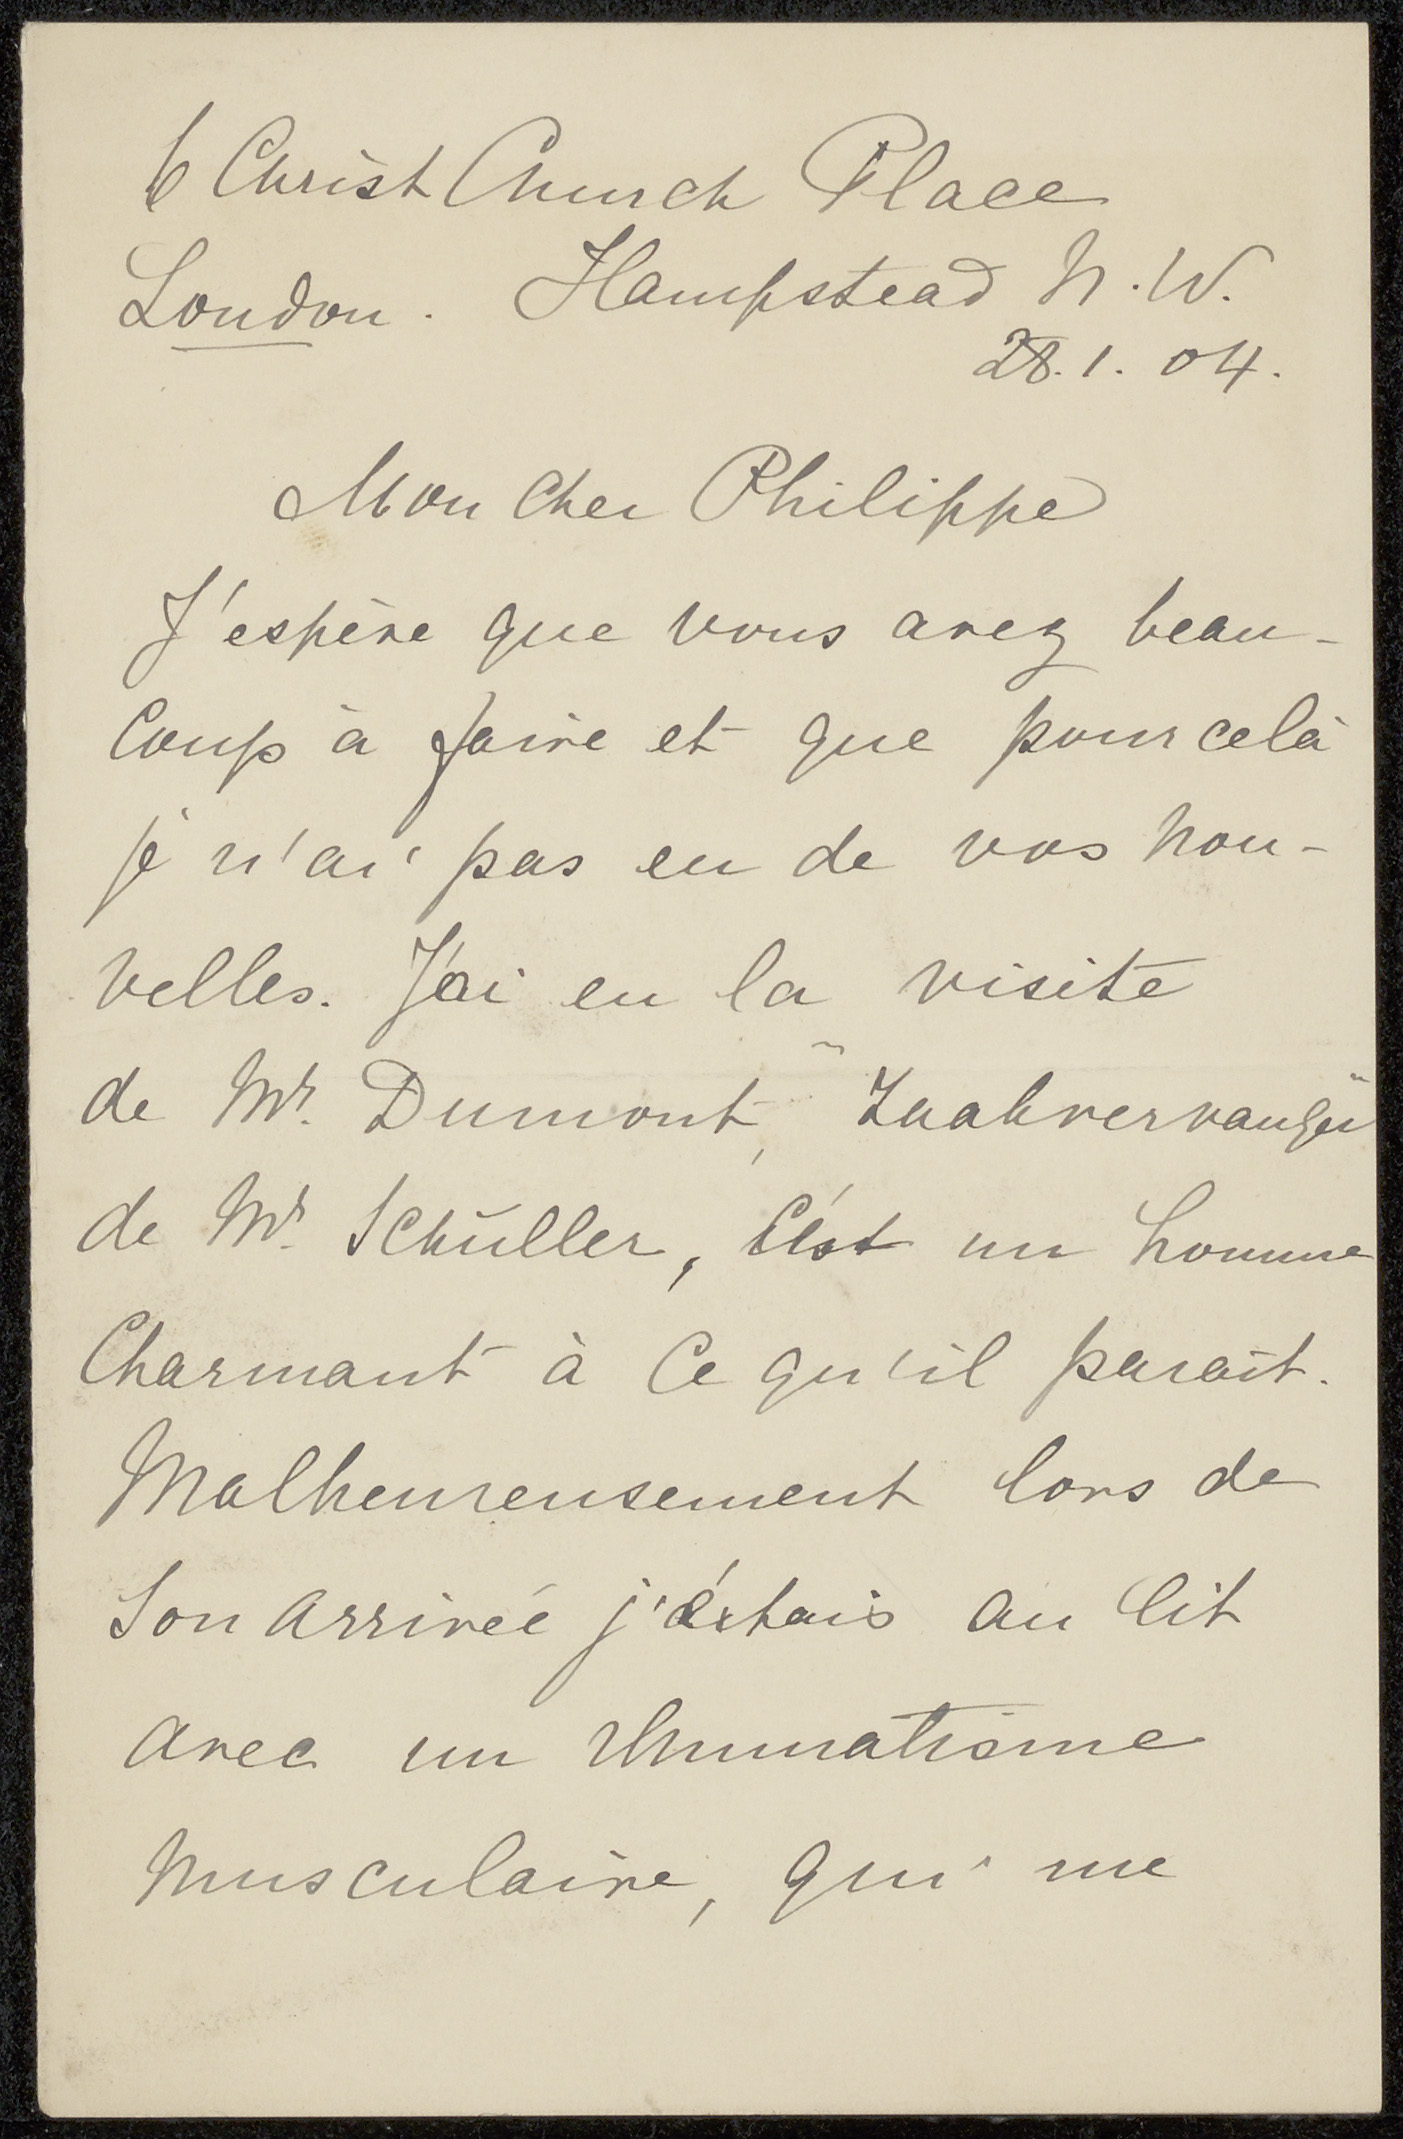 6 Christ Church Place
London. Hampstead N.W.
28.1.04.
Mon cher Philippe
J'espère que vous avez beau-
coup à faire et que pour celà
je n'ai pas eu de vos nou-
velles. J'ai eu la visite
de Mr. Dumont, "Zaakvervanger"
de Mr. Schüller, C'est un homme
charmant à ce qu'il parait.
Malheureusement lors de
son arrivée j'étais au lit
avec un rhumatisme
musculaire, qui me